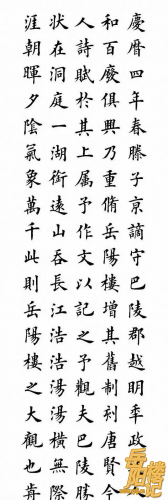 慶曆四年春滕子京謫守巴陵郡越明秊政
和百廢俱興乃重脩岳陽樓增其舊制刻唐賢今
人詩賦於其上属予作文以記之予觀夫巴陵勝
狀在洞庭一湖銜遠山吞長江浩浩湯湯橫無際
涯朝暉夕陰氣象萬千此則岳陽樓之大觀也前